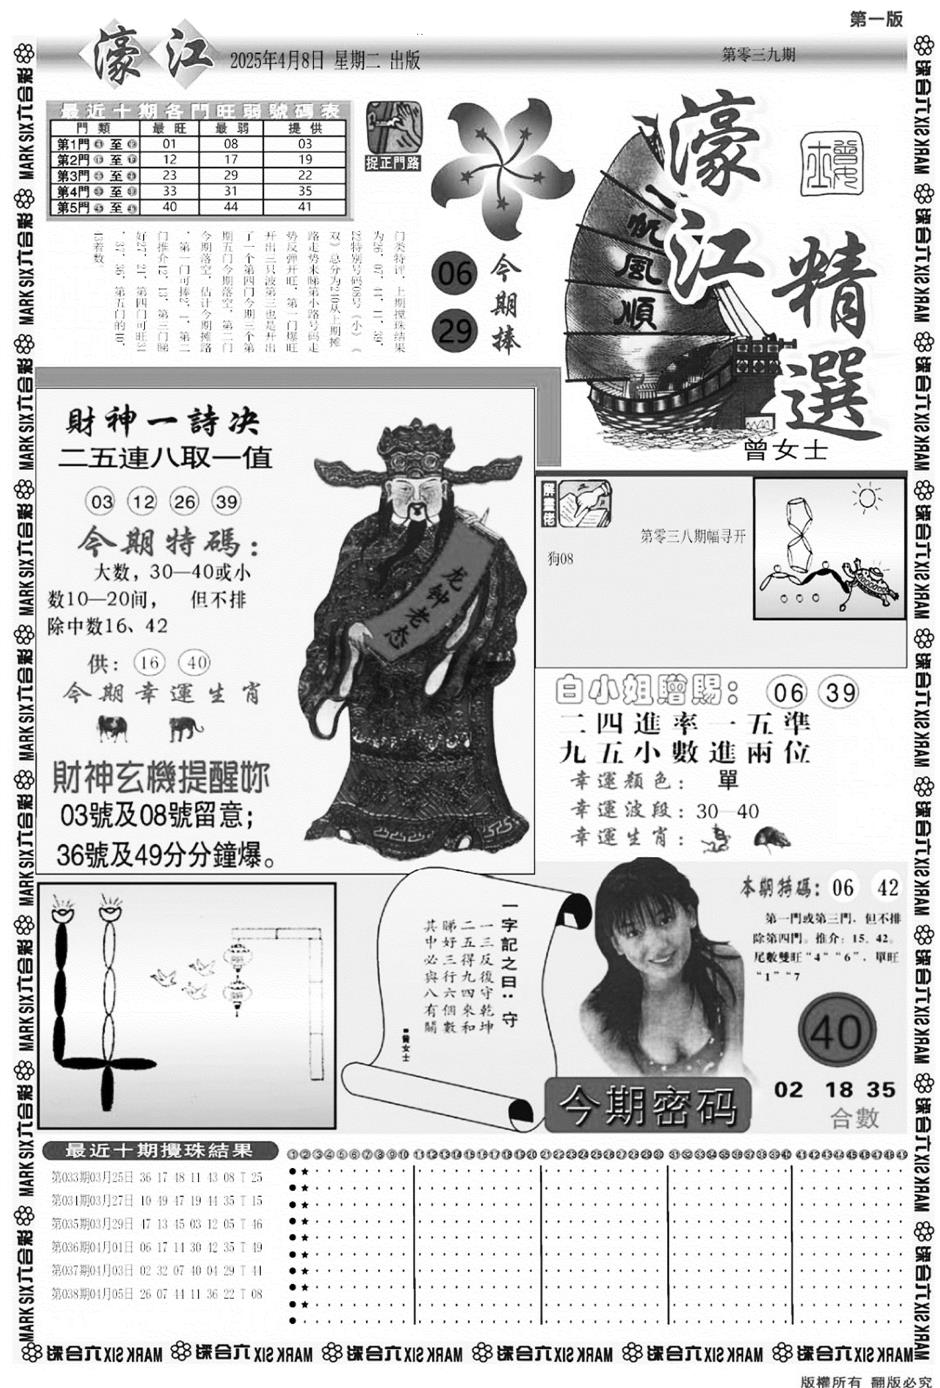 第一版
濠江
2025年4月8日 星期二 出版
第零三九期
最近十期各門旺弱號碼表
門類 最旺 最弱 提供
第1門 至 01 08 03
第2門 至 12 17 19
第3門 至 23 29 22
第4門 至 33 31 35
第5門 至 40 44 41
捉正門路
06
29
今期捧
一帆風順
濠江
精選
曾女士
门类特评，上期搅珠结果
开出三只波第三也是开出
了一个第四门今期三个第
期五门今期落空，第二门
今期落空，估计今期摊路
財神一詩决
二五連八取一值
03 12 26 39
今期特碼：
大数，30—40或小
数10—20间， 但不排
除中数16、42
供：16 40
今期幸運生肖
財神玄機提醒妳
03號及08號留意；
36號及49分分鐘爆。
龙钟老态
解畫佬
第零三八期幅寻开
狗08
白小姐贈賜：06 39
二四進率一五準
九五小數進兩位
幸運顏色： 單
幸運波段：30—40
幸運生肖：
一字記之曰：守
一三反復守乾坤
二五得九四來和
睇好三行六個數
其中必與八有關
■曾女士
本期特碼：06 42
第一門或第三門，但不排
除第四門。推介：15．42。
尾數雙旺“4”“6”，單旺
“1”“7
40
今期密码
02 18 35
合數
最近十期攪珠結果
第033期03月25日 36 17 48 11 43 08 T 25
第034期03月27日 10 49 47 19 44 35 T 15
第035期03月29日 47 13 45 03 12 05 T 46
第036期04月01日 06 17 14 30 42 35 T 49
第037期04月03日 02 32 07 40 04 29 T 41
第038期04月05日 26 07 44 11 36 22 T 08
六合彩 MARK SIX
版權所有 翻版必究